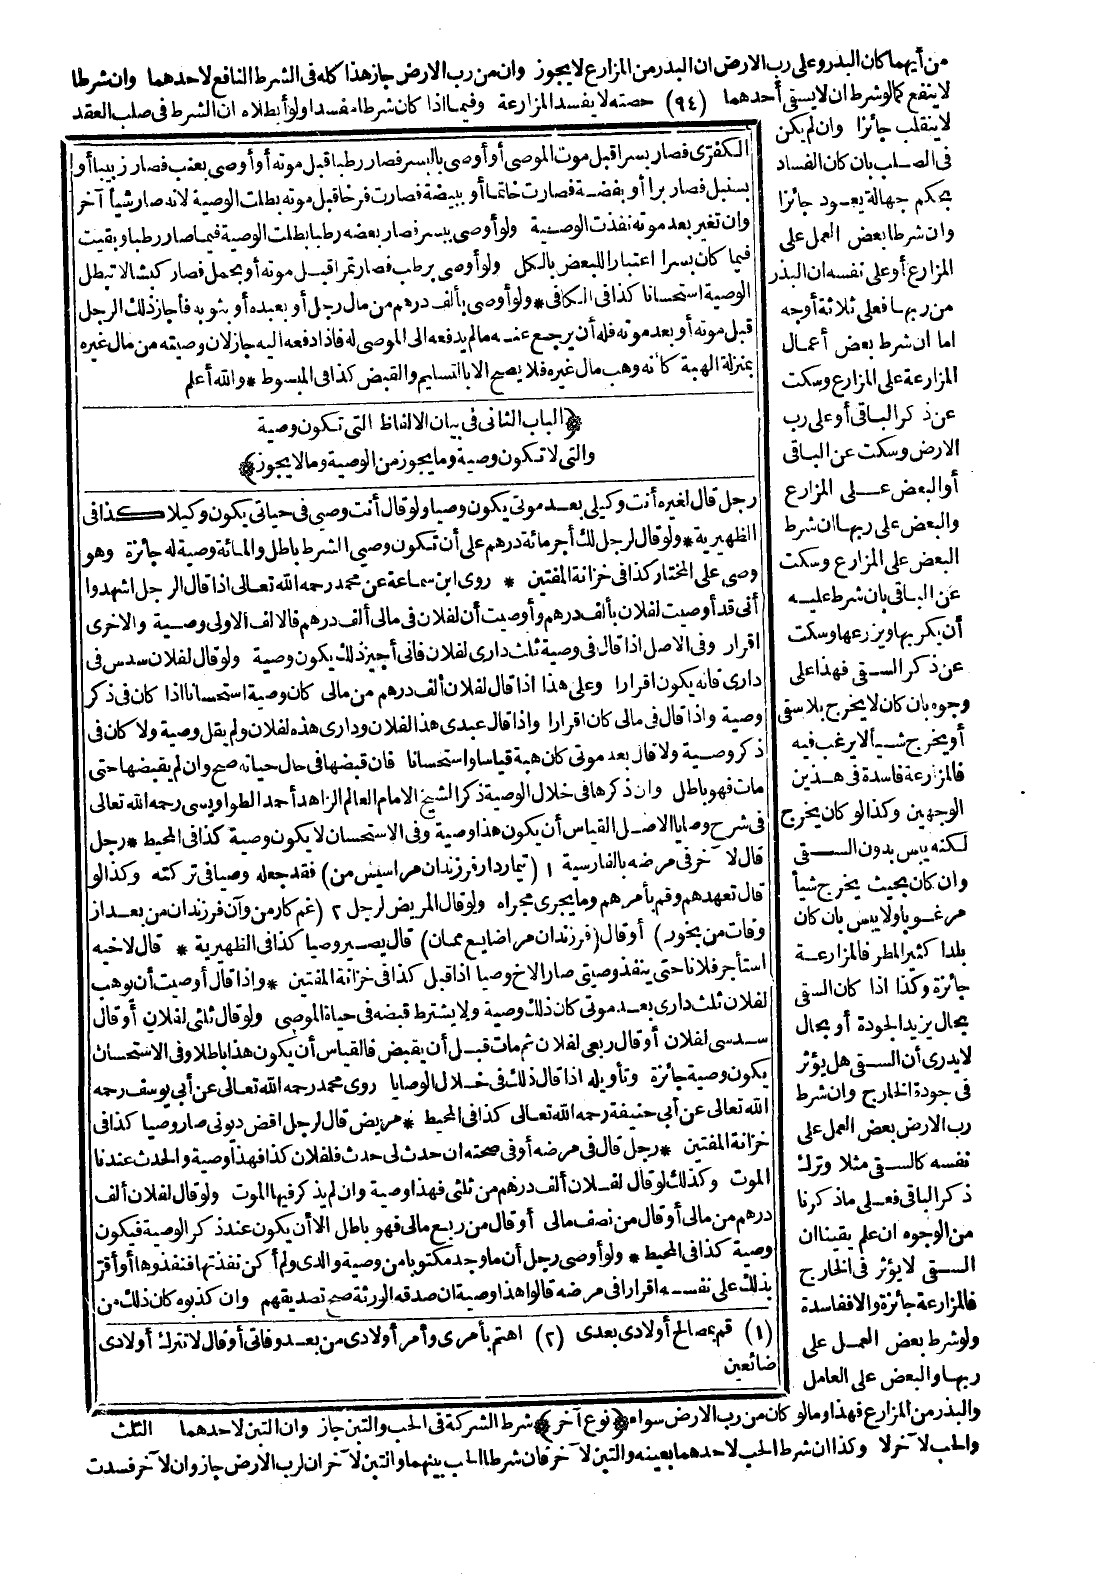 من أيهما كان البذر وعلى رب الارض ان البذر من المزارع لا يجوز وان من رب الارض جاز هذا كله فى الشرط النافع لاحدهما وان شرطا
لا ينتفع كما لو شرط ان لا يسقى أحدهما (٩٤) حصته لا يفسد المزارعة وفيما اذا كان شرطا مفسدا ولو أبطلاه ان الشرط فى صلب العقد
لا ينقلب جائزا وان لم يكن
فى الصلب بان كان الفساد
بحكم جهالة يعود جائزا
وان شرطا بعض العمل على
المزارع أو على نفسه ان البذر
من ربها فعلى ثلاثة أوجه
اما ان شرط بعض أعمال
المزارعة على المزارع وسكت
عن ذكر الباقى أو على رب
الارض وسكت عن الباقى
أو البعض على المزارع
والبعض على ربها ان شرط
البعض على المزارع وسكت
عن الباقى بان شرط عليه
أن يكربها ويزرعها وسكت
عن ذكر السقى فهذا على
وجوه بان كان لا يخرج بلا سقى
أو يخرج شيأ لا يرغب فيه
فالمزارعة فاسدة فى هذين
الوجهين وكذا لو كان يخرج
لكنه ييبس بدون السقى
وان كان بحيث يخرج شيأ
مرغوبا ولا ييبس بان كان
بلدا كثير المطر فالمزارعة
جائزة وكذا اذا كان السقى
بحال يزيد الجودة أو بحال
لا يدرى أن السقى هل يؤثر
فى جودة الخارج وان شرط
رب الارض بعض العمل على
نفسه كالسقى مثلا وترك
ذكر الباقى فعلى ما ذكرنا
من الوجوه ان علم يقينا ان
السقى لا يؤثر فى الخارج
فالمزارعة جائزة والا ففاسدة
ولو شرط بعض العمل على
ربها والبعض على العامل
والبذر من المزارع فهذا وما لو كان من رب الارض سواء ﴿نوع آخر﴾ شرط الشركة فى الحب والتبن جاز وان التبن لاحدهما الثلث
والحب لآخر لا وكذا ان شرط الحب لاحدهما بعينه والتبن لآخر فان شرطا الحب بينهما والتبن لآخر ان لرب الارض جاز وان لآخر فسدت
الكفرّى فصار بسرا قبل موت الموصى أو أوصى بالبسر فصار رطبا قبل موته أو أوصى بعنب فصار زبيبا أو
بسنبل فصار برا أو بفضة فصارت خاتما أو ببيضة فصارت فرخا قبل موته بطلت الوصية لانه صار شيأ آخر
وان تغير بعد موته نفذت الوصية ولو أوصى ببسر فصار بعضه رطبا بطلت الوصية فيما صار رطبا وبقيت
فيما كان بسرا اعتبارا للبعض بالكل ولو أوصى برطب فصار تمرا قبل موته أو بحمل فصار كبشا لا تبطل
الوصية استحسانا كذا فى الكافى * ولو أوصى بألف درهم من مال رجل أو بعبده أو بثوبه فأجاز ذلك الرجل
قبل موته أو بعد موته فله أن يرجع عنه ما لم يدفعه الى الموصى له فاذا دفعه اليه جاز لان وصيته من مال غيره
بمنزلة الهبة كأنه وهب مال غيره فلا يصح الا بالتسليم والقبض كذا فى المبسوط * والله أعلم
﴿الباب الثانى فى بيان الالفاظ التى تكون وصية
والتى لا تكون وصية وما يجوز من الوصية وما لا يجوز﴾
رجل قال لغيره أنت وكيلى بعد موتى يكون وصيا ولو قال أنت وصيى فى حياتى يكون وكيلا كذا فى
الظهيرية * ولو قال لرجل لك أجر مائة درهم على أن تكون وصيى الشرط باطل والمائة وصية له جائزة وهو
وصى على المختار كذا فى خزانة المفتين * روى ابن سماعة عن محمد رحمه الله تعالى اذا قال الرجل اشهدوا
أنى قد أوصيت لفلان بألف درهم وأوصيت أن لفلان فى مالى ألف درهم فالالف الاولى وصية والاخرى
اقرار وفى الاصل اذا قال فى وصية ثلث دارى لفلان فانى أجيز ذلك يكون وصية ولو قال لفلان سدس فى
دارى فانه يكون اقرارا وعلى هذا اذا قال لفلان ألف درهم من مالى كان وصية استحسانا اذا كان فى ذكر
وصية واذا قال فى مالى كان اقرارا واذا قال عبدى هذا لفلان ودارى هذه لفلان ولم يقل وصية ولا كان فى
ذكر وصية ولا قال بعد موتى كان هبة قياسا واستحسانا فان قبضها فى حال حياته صح وان لم يقبضها حتى
مات فهو باطل وان ذكرها فى خلال الوصية ذكر الشيخ الامام العالم الزاهد أحمد الطواويسى رحمه الله تعالى
فى شرح وصايا الاصل القياس أن يكون هذا وصية وفى الاستحسان لا يكون وصية كذا فى المحيط * رجل
قال لآخر فى مرضه بالفارسية ١ (تيمار دار فرزندان مرا سپس من) فقد جعله وصيا فى تركته وكذا لو
قال تعهدهم وقم بأمرهم وما يجرى مجراه ولو قال المريض لرجل ٢ (غم كار من وآن فرزندان من بعد از
وفات من بخور) أو قال (فرزندان مرا ضايع ممان) قال يصير وصيا كذا فى الظهيرية * قال لاخيه
استأجر فلانا حتى ينفذ وصيتى صار الاخ وصيا اذا قبل كذا فى خزانة المفتين * واذا قال أوصيت أن يوهب
لفلان ثلث دارى بعد موتى كان ذلك وصية ولا يشترط قبضه فى حياة الموصى ولو قال ثلثى لفلان أو قال
سدسى لفلان أو قال ربعى لفلان ثم مات قبل أن يقبض فالقياس أن يكون هذا باطلا وفى الاستحسان
يكون وصية جائزة وتأويله اذا قال ذلك فى خلال الوصايا روى محمد رحمه الله تعالى عن أبى يوسف رحمه
الله تعالى عن أبى حنيفة رحمه الله تعالى كذا فى المحيط * مريض قال لرجل اقض ديونى صار وصيا كذا فى
خزانة المفتين * رجل قال فى مرضه أو فى صحته ان حدث لى حدث فلفلان كذا فهذا وصية والحدث عندنا
الموت وكذلك لو قال لفلان ألف درهم من ثلثى فهذا وصية وان لم يذكر فيها الموت ولو قال لفلان ألف
درهم من مالى أو قال من نصف مالى أو قال من ربع مالى فهو باطل الا أن يكون عند ذكر الوصية فيكون
وصية كذا فى المحيط * ولو أوصى رجل أن ما وجد مكتوبا من وصية والدى ولم أكن نفذتها فنفذوها أو أقر
بذلك على نفسه اقرارا فى مرضه قالوا هذا وصية ان صدقه الورثة صح تصديقهم وان كذبوه كان ذلك من
(١) قم بمصالح أولادى بعدى (٢) اهتم بأمرى وأمر أولادى من بعد وفاتى أو قال لا تترك أولادى
ضائعين